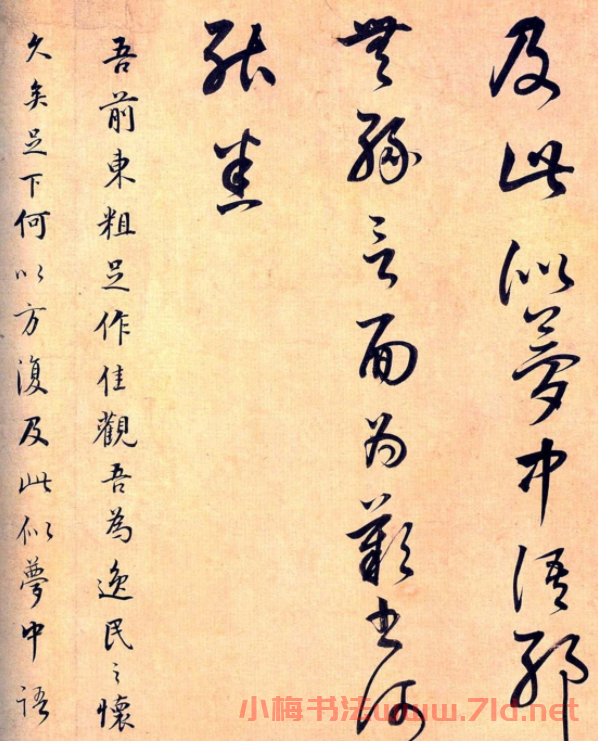 及此似夢中語邪
無緣言面為歎書何
能悉
吾前東粗足作佳觀吾為逸民之懷
久矣足下何以方復及此似夢中語
小梅书法www.7ld.net